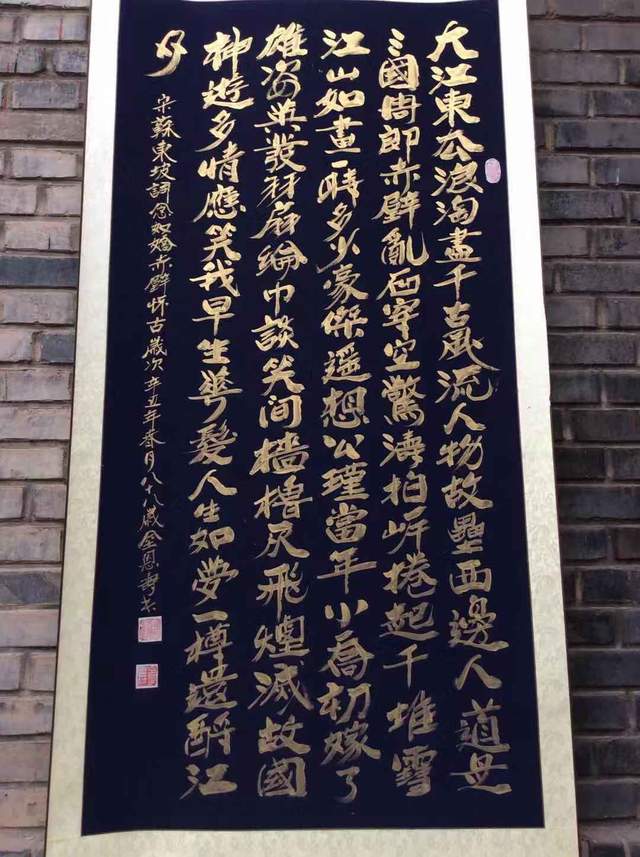 大江東去浪淘盡千古風流人物故壘西邊人道是
三國周郎赤壁亂石穿空驚濤拍岸捲起千堆雪
江山如畫一時多少豪傑遥想公瑾當年小喬初嫁了
雄姿英發羽扇綸巾談笑间檣櫓灰飛煙滅故國
神遊多情應笑我早生華髮人生如夢一樽還酹江
月
宋蘇東坡詞念奴嬌赤壁怀古歲次辛丑年春月八十八歲金恩壽书